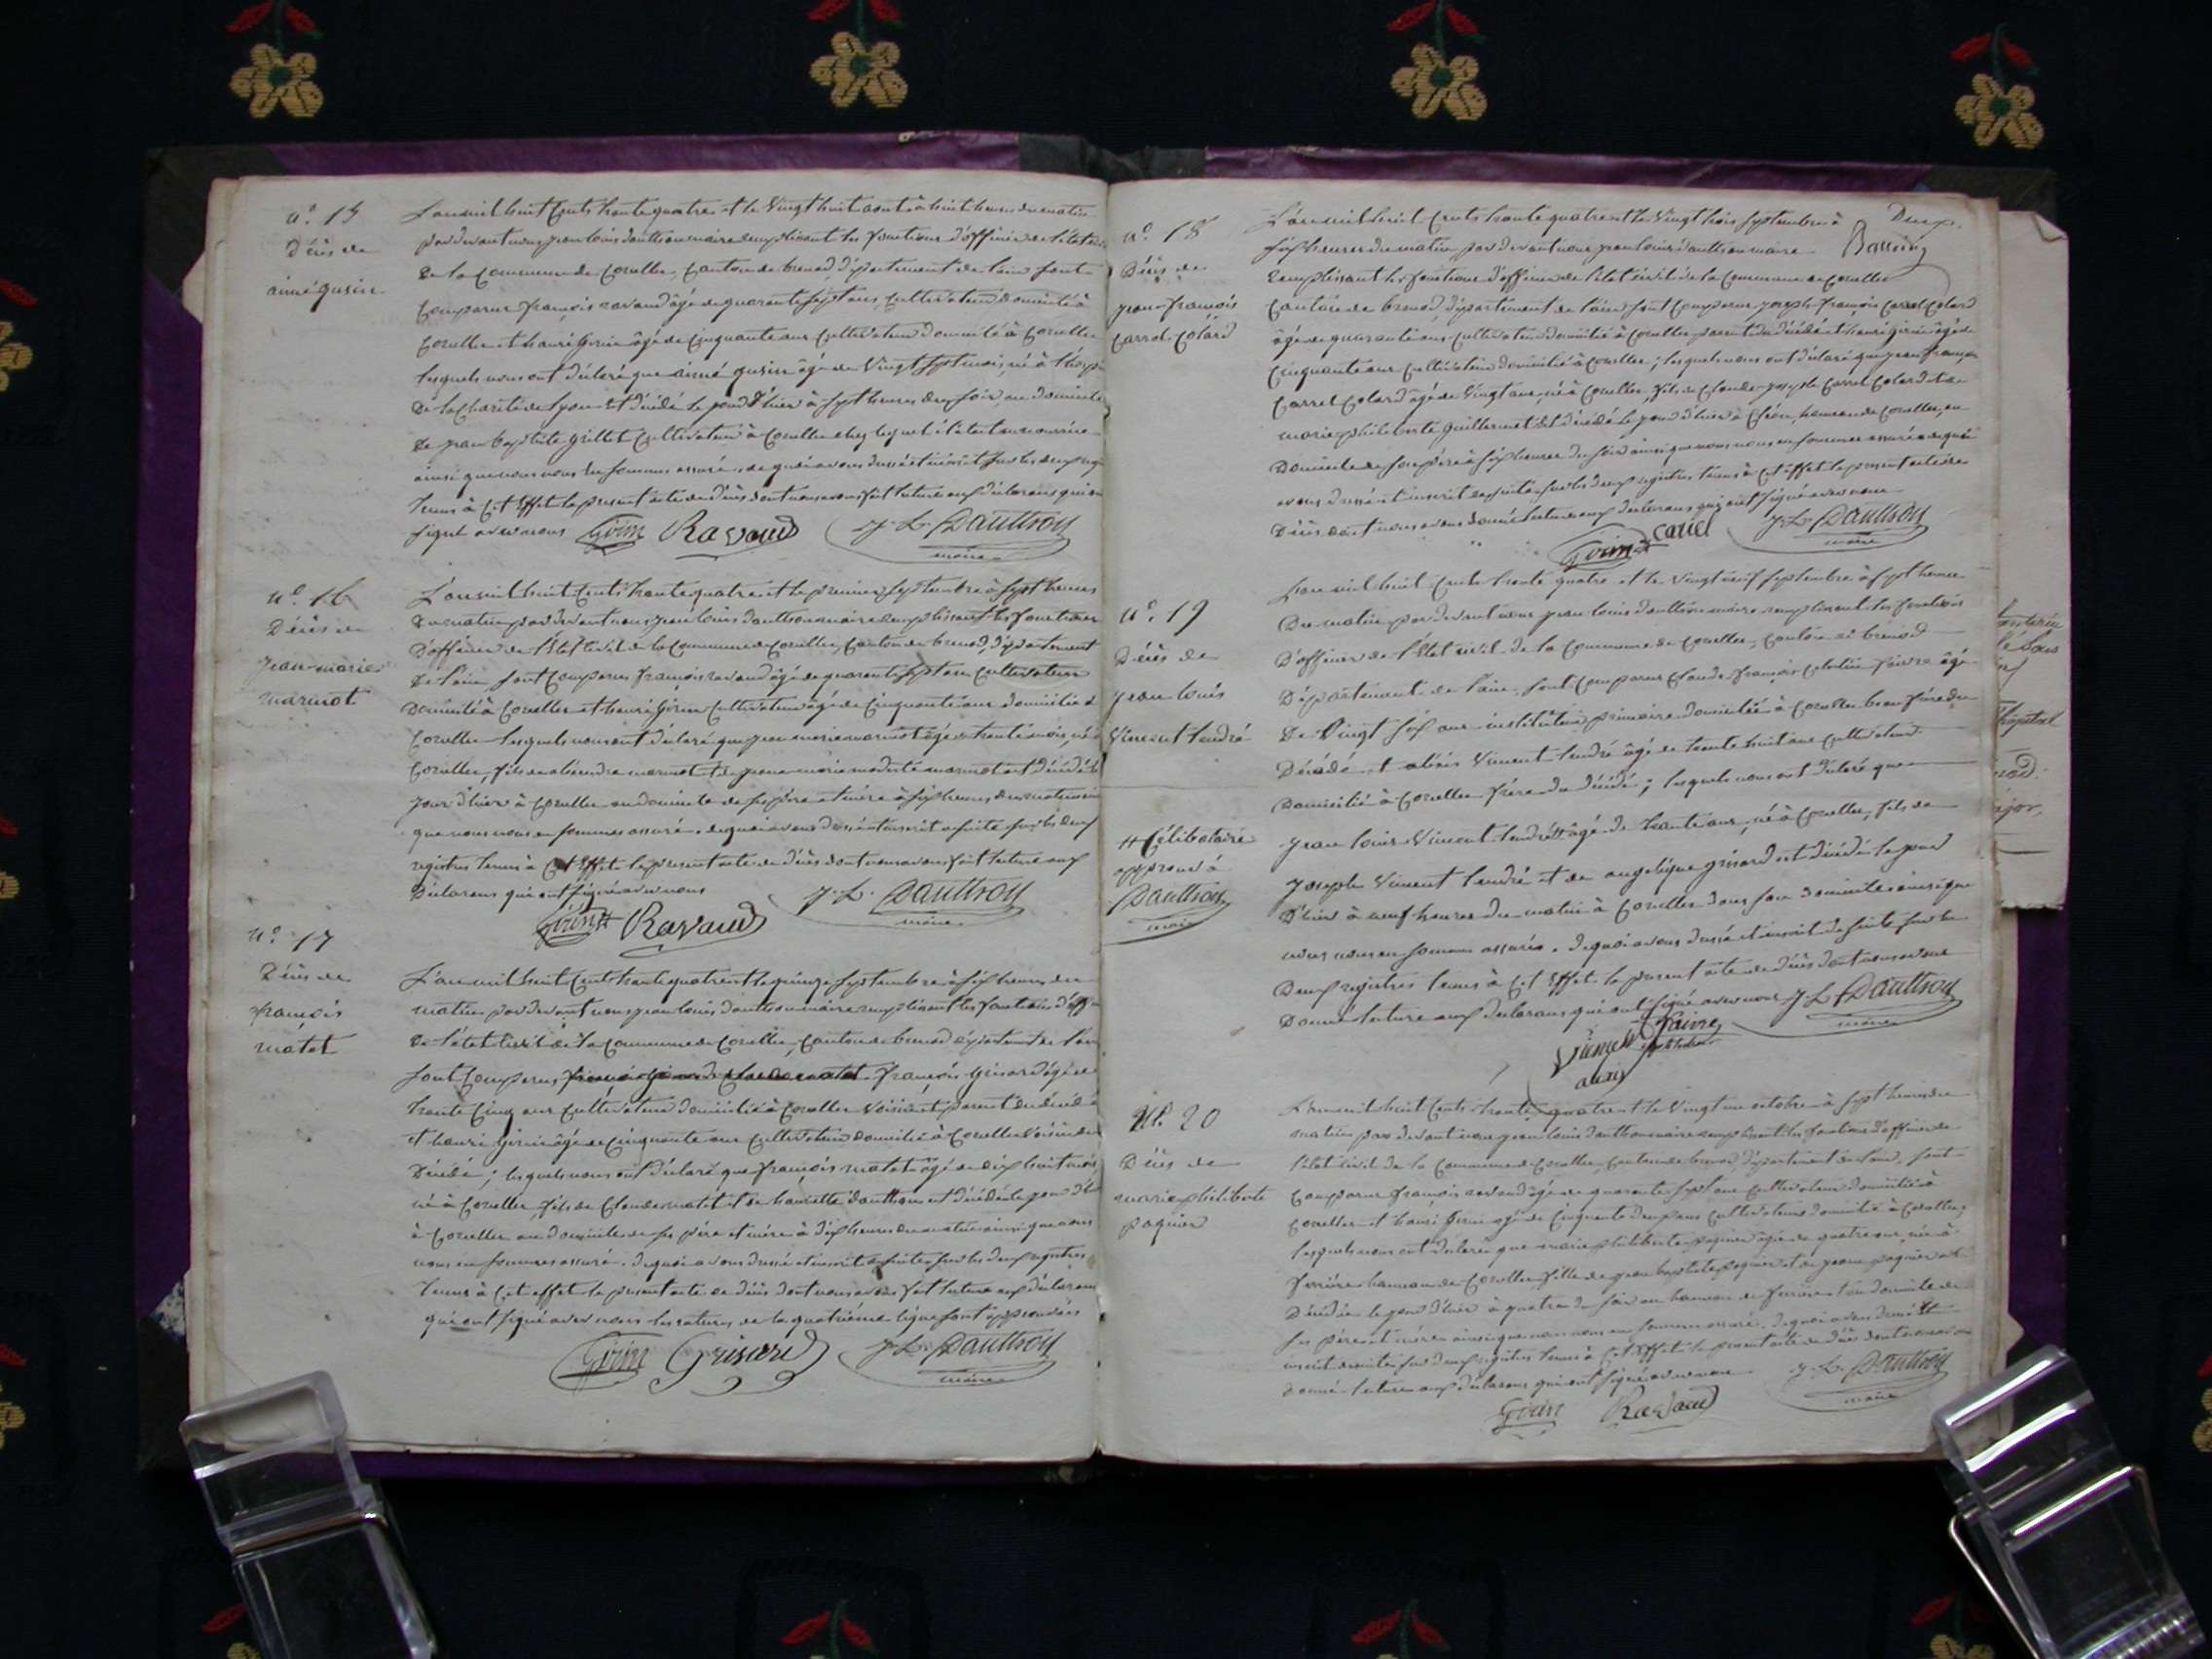 n°. 15
Décès de
aimé gusin
L'an mil huit Cents trente quatre et le Vingt huit aout à huit heures du matin
par devant nous jean louis dauttion maire remplissant les fonctions d'officier de l'état
de la Commune de Corcelles, Canton de brenod département de l'ain sont
Comparus françois ravaud âgé de quarante sept ans, Cultivateur domicilié à
Corcelles et henri girin âgé de Cinquante ans Cultivateur domicilié à Corcelles
lesquels nous ont déclaré que aimé gusin âgé de Vingt sept mois, né à
de la Charité de lyon est décédé le jour d'hier à sept heures du soir, au domicile
de jean baptiste grillet Cultivateur à Corcelles chez lequel il était en nourrice
ainsi que nous nous en sommes assuré. de quoi avons dressé et inscrit sur les deux
tenus à Cet Effet le present acte de décès dont nous avons fait lecture aux déclarans qui ont
signé avec nous Girin Ravaud J. L. Dauttion
maire
n°. 16
Décès de
jean-marie
marmot
L'an mil huit Cents trente quatre et le premier septembre à sept heures
du matin par devant nous jean louis dauttion maire remplissant les fonctions
d'officier de l'Etat Civil de la Commune de Corcelles, Canton de brenod, département
de l'ain sont Comparus françois ravaud âgé de quarante sept ans Cultivateur
domicilié à Corcelles et henri girin Cultivateur âgé de Cinquante ans domicilié à
Corcelles lesquels nous ont déclaré que jean marie marmot âgé de trente mois, né à
Corcelles, fils de marmot et de jeanne marie est décédé le
jour d'hier à Corcelles au domicile de ses père et mère à six heures du matin
que nous nous en sommes assuré. de quoi avons dressé et inscrit de suite sur les deux
registres tenus à Cet Effet le present acte de décès dont nous avons fait lecture aux
déclarans qui ont signé avec nous J. L. Dauttion
Girin Ravaud maire
n°. 17
Décès de
françois
matet
L'an mil huit Cents trente quatre et le quinze septembre à six heures du
matin par devant nous jean louis dauttion maire remplissant les fonctions
de l'état Civil de la Commune de Corcelles, Canton de brenod département de l'ain
sont Comparus françois grisard âgé de
trente Cinq ans Cultivateur domicilié à Corcelles Voisin et parent du décédé
et henri girin âgé de Cinquante ans Cultivateur domicilié à Corcelles Voisin du
décédé; lesquels nous ont déclaré que françois matet âgé de dix huit mois
né à Corcelles, fils de Claude matet et de henriette dauttion est décédé le jour d'hier
à Corcelles au domicile de ses père et mère à dix heures du matin ainsi que nous
nous en sommes assuré. de quoi avons dressé et inscrit de suite sur les deux registres
tenus à Cet effet le present acte de décès dont nous avons fait lecture aux déclarans
qui ont signé avec nous les ratures de la quatrième ligne sont approuvées
Girin Grisard J. L. Dauttion
maire
Deux
n°. 18
Décès de
jean-françois
Carrel-Colard
L'an mil huit Cents trente quatre et le Vingt trois septembre à
six heures du matin par devant nous jean louis dauttion maire
remplissant les fonctions d'officier de l'état civil de la Commune de Corcelles
Canton de brenod, département de l'ain, sont Comparus joseph-françois Carrel Colard
âgé de quarante ans Cultivateur domicilié à Corcelles parent du décédé et henri girin âgé de
Cinquante ans Cultivateur domicilié à Corcelles; lesquels nous ont déclaré que jean françois
Carrel Colard âgé de Vingt ans, né à Corcelles, fils de Claude-joseph Carrel Colard et de
marie philiberte guillermet est décédé le jour d'hier à hameau de Corcelles, au
domicile de son père à six heures du soir ainsi que nous nous en sommes assuré. de quoi
avons dressé et inscrit de suite sur les deux registres tenus à Cet effet le present acte de
Décès dont nous avons donné lecture aux déclarans qui ont signé avec nous
Girin carrel J. L. Dauttion
maire
n°. 19
Décès de
jean louis
Vincent tendré
L'an mil huit Cents trente quatre et le Vingt neuf septembre à sept heures
du matin par devant nous jean louis dauttion maire remplissant les fonctions
d'officier de l'Etat civil de la Commune de Corcelles, Canton de brenod
Département de l'ain, sont Comparus Claude françois faivre âgé
de Vingt six ans instituteur primaire domicilié à Corcelles beau frère du
Décédé et alexis Vincent tendré âgé de trente huit ans Cultivateur
domicilié à Corcelles frère du décédé; lesquels nous ont déclaré que
jean louis Vincent tendré # âgé de trente ans, né à Corcelles, fils de
joseph Vincent tendré et de angelique grisard est décédé le jour
d'hier à neuf heures du matin à Corcelles dans son domicile ainsi que
nous nous en sommes assurés. de quoi avons dressé et inscrit de suite sur les
deux registres tenus à Cet Effet le present acte de décès dont nous avons
donné lecture aux déclarans qui ont signé avec nous J. L. Dauttion
maire
# Célibataire
approuvé
Dauttion
maire
Vincent faivre
alexis
N°. 20
Décès de
marie philiberte
paquier
L'an mil huit Cents trente quatre et le Vingt un octobre à sept heures du
matin par devant nous jean louis dauttion maire remplissant les fonctions d'officier de
l'état civil de la Commune de Corcelles, Canton de brenod, département de l'ain, sont
Comparus françois ravaud âgé de quarante sept ans Cultivateur domicilié à
Corcelles et henri girin âgé de Cinquante deux ans Cultivateur domicilié à Corcelles;
lesquels nous ont déclaré que marie philiberte paquier âgée de quatre ans, née à
hameau de Corcelles fille de jean baptiste paquier et de jeanne paquier est
Décédée le jour d'hier à quatre du soir au hameau de au domicile de
ses père et mère ainsi que nous nous en sommes assuré. de quoi avons dressé et
inscrit de suite sur deux registres tenus à Cet Effet le present acte de décès dont nous avons
donné lecture aux déclarans qui ont signé avec nous J. L. Dauttion
Girin Ravaud maire